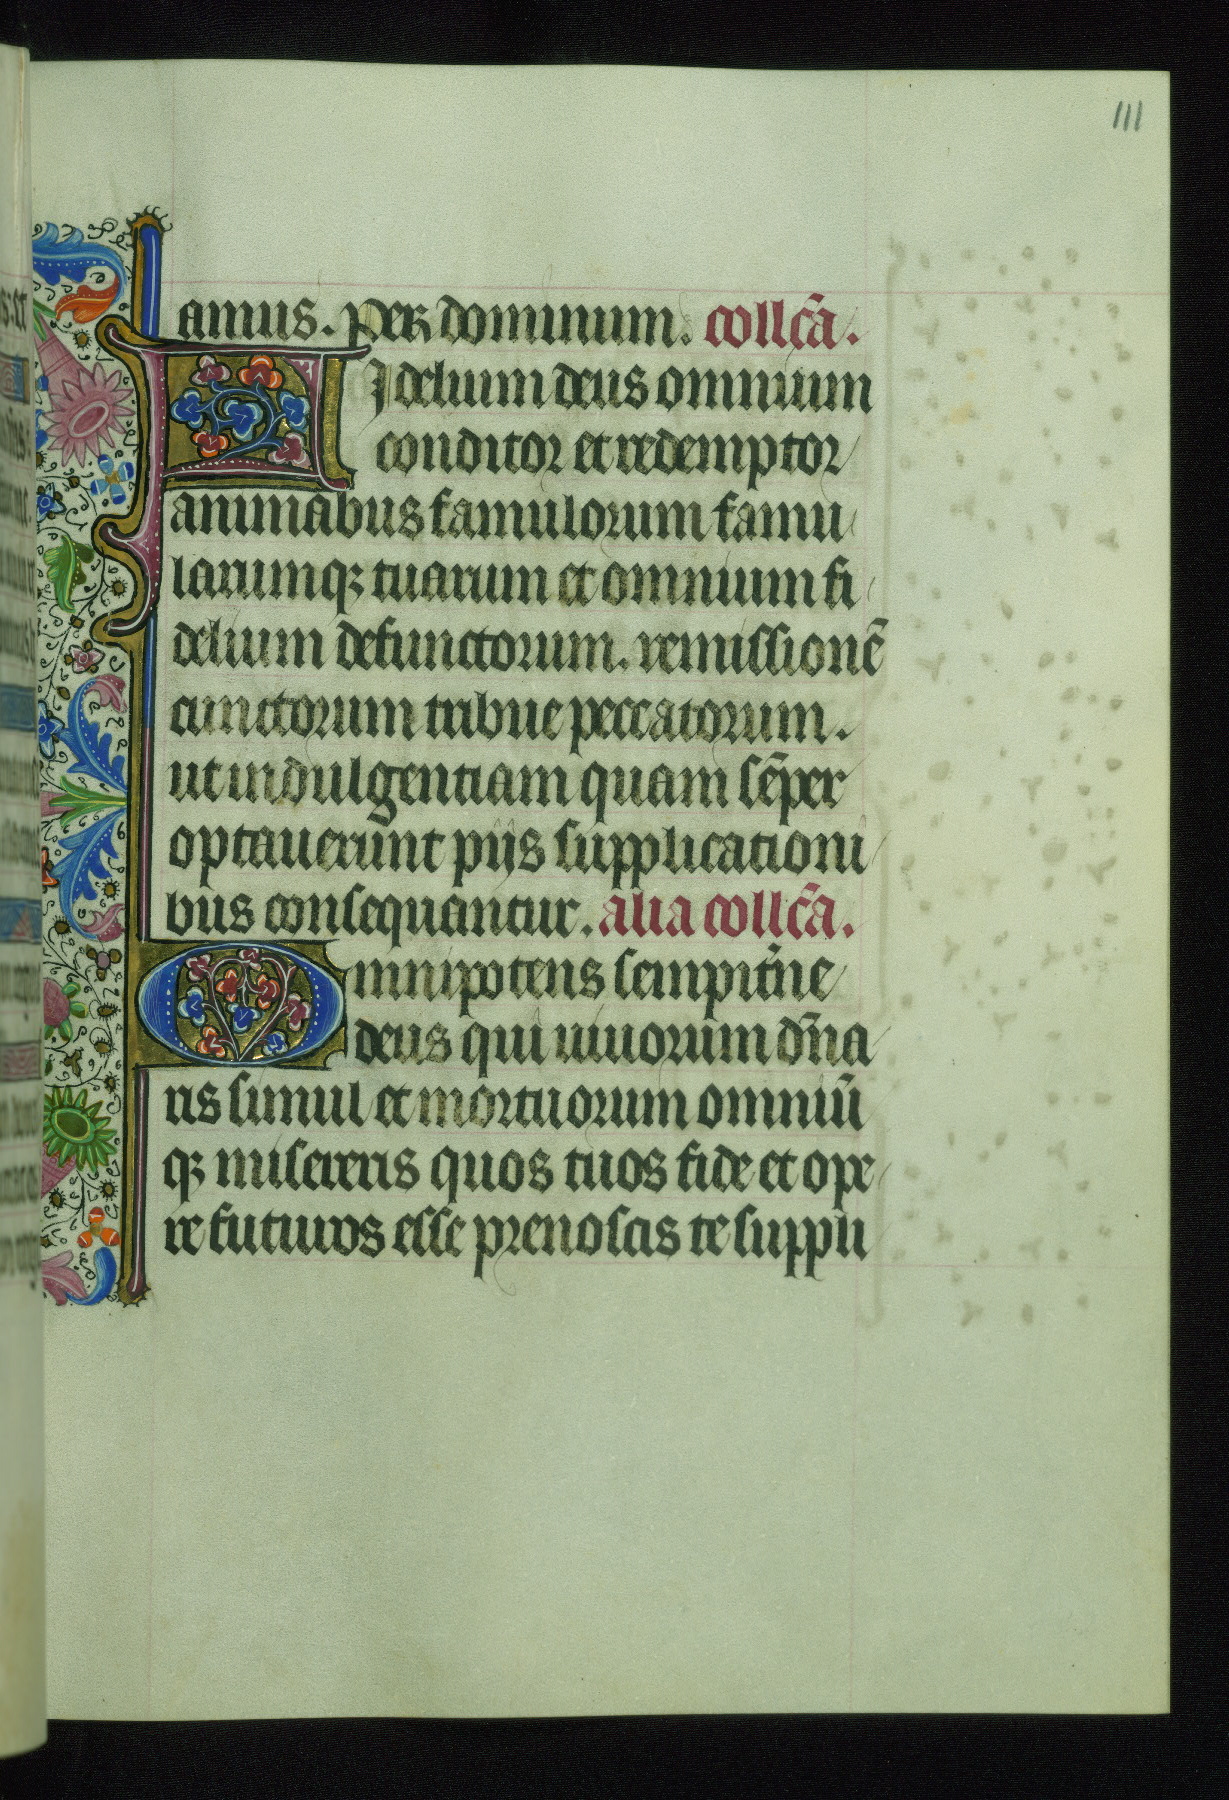 111
amus. Per dominum. collc̄a.
Fidelium deus omnium
conditor et redemptor
animabus famulorum famu
larumqꝫ tuarum et omnium fi
delium defunctorum. remissionē
cunctorum tribue peccatorum.
ut indulgentiam quam sēper
optauerunt pijs supplicationi
bus consequantur. alia collc̄a.
Omnipotens sempit̄ne
deus qui uiuorum dn̄a
ris simul et mortuorum omniū
qꝫ misereris quos tuos fide et ope
re futuros esse prenoscis te suppli